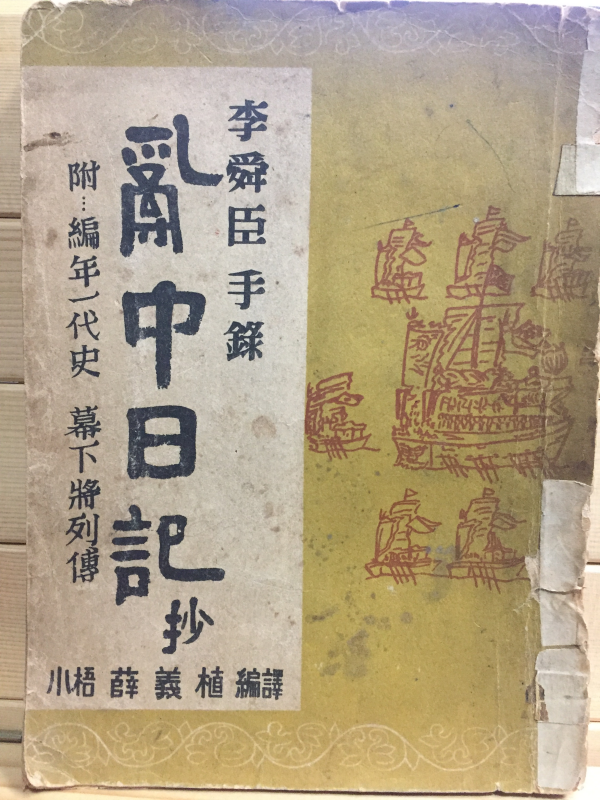 李舜臣 手錄
亂中日記抄
附…編年一代史 幕下將列傳
小梧 薛義植 編譯